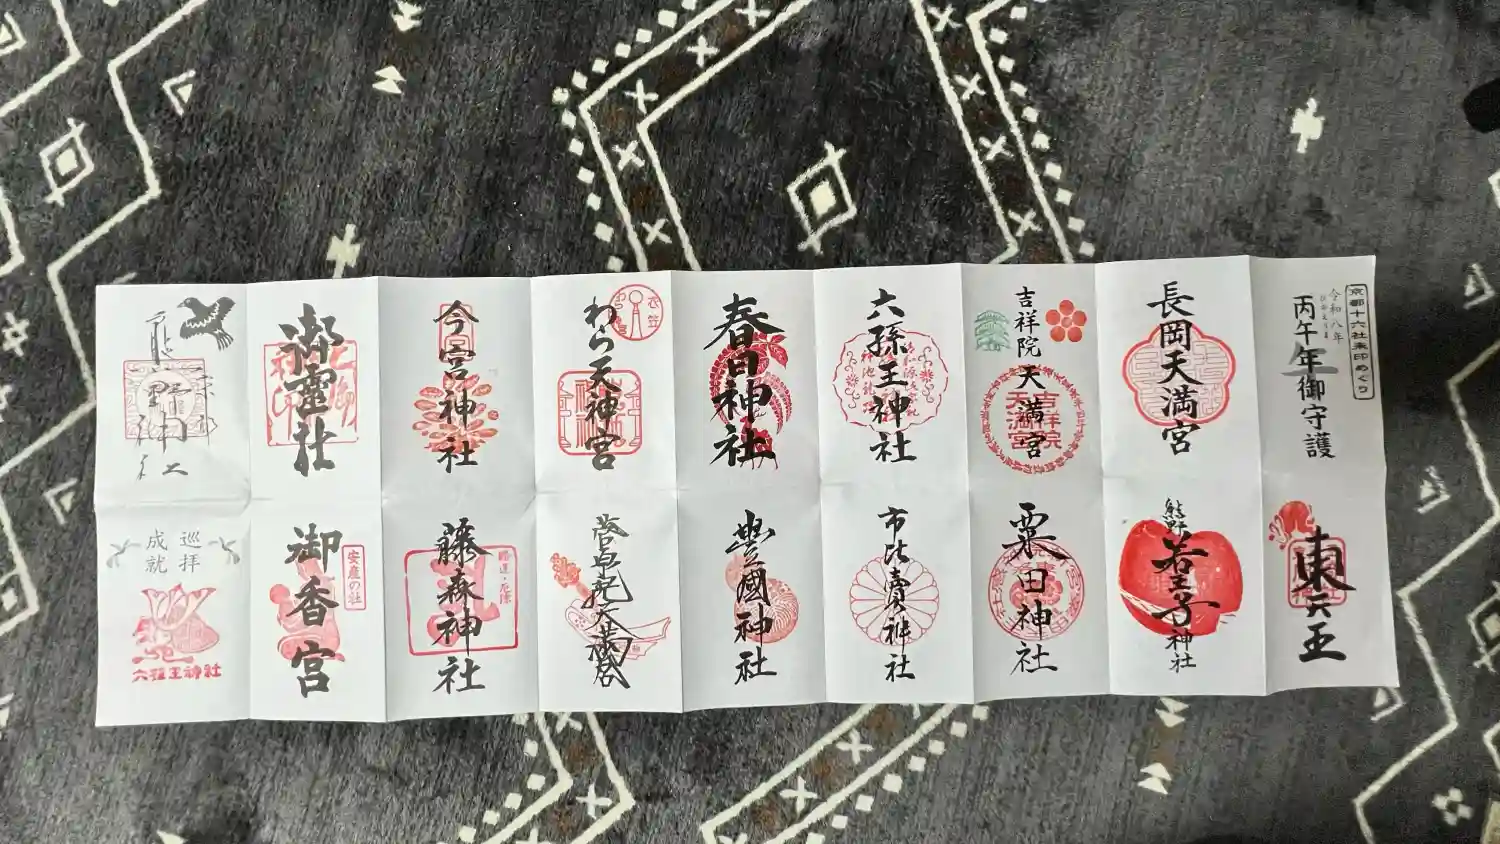 京都十六社朱印めぐり
令和八年
丙午年御守護
長岡天満宮
吉祥院
天満宮
六孫王神社
春日神社
わら天神宮
衣笠
今宮神社
御霊社
熊野神社
東天王
熊野若王子神社
粟田神社
市比賣神社
豊國神社
菅原院天満宮
藤森神社
勝運・厄除
御香宮
安産の社
巡拝
成就
六孫王神社